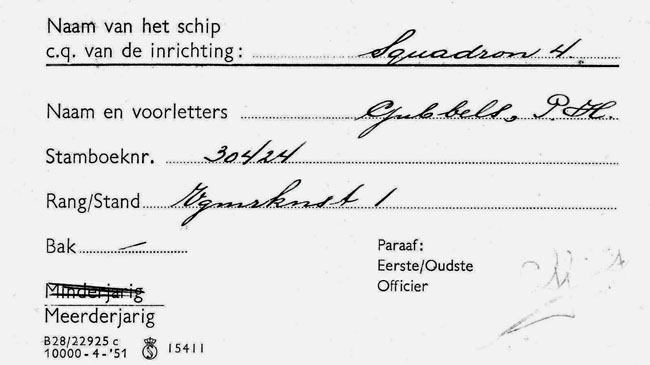 Naam van het schip
c.q. van de inrichting: Squadron 4.
Naam en voorletters Gubbels, P.H.
Stamboeknr. 30424
Rang/Stand Vgmrknst 1
Bak —
Paraaf:
Eerste/Oudste
Officier
Minderjarig
Meerderjarig
B28/22925 c
10000-4-'51 S 15411